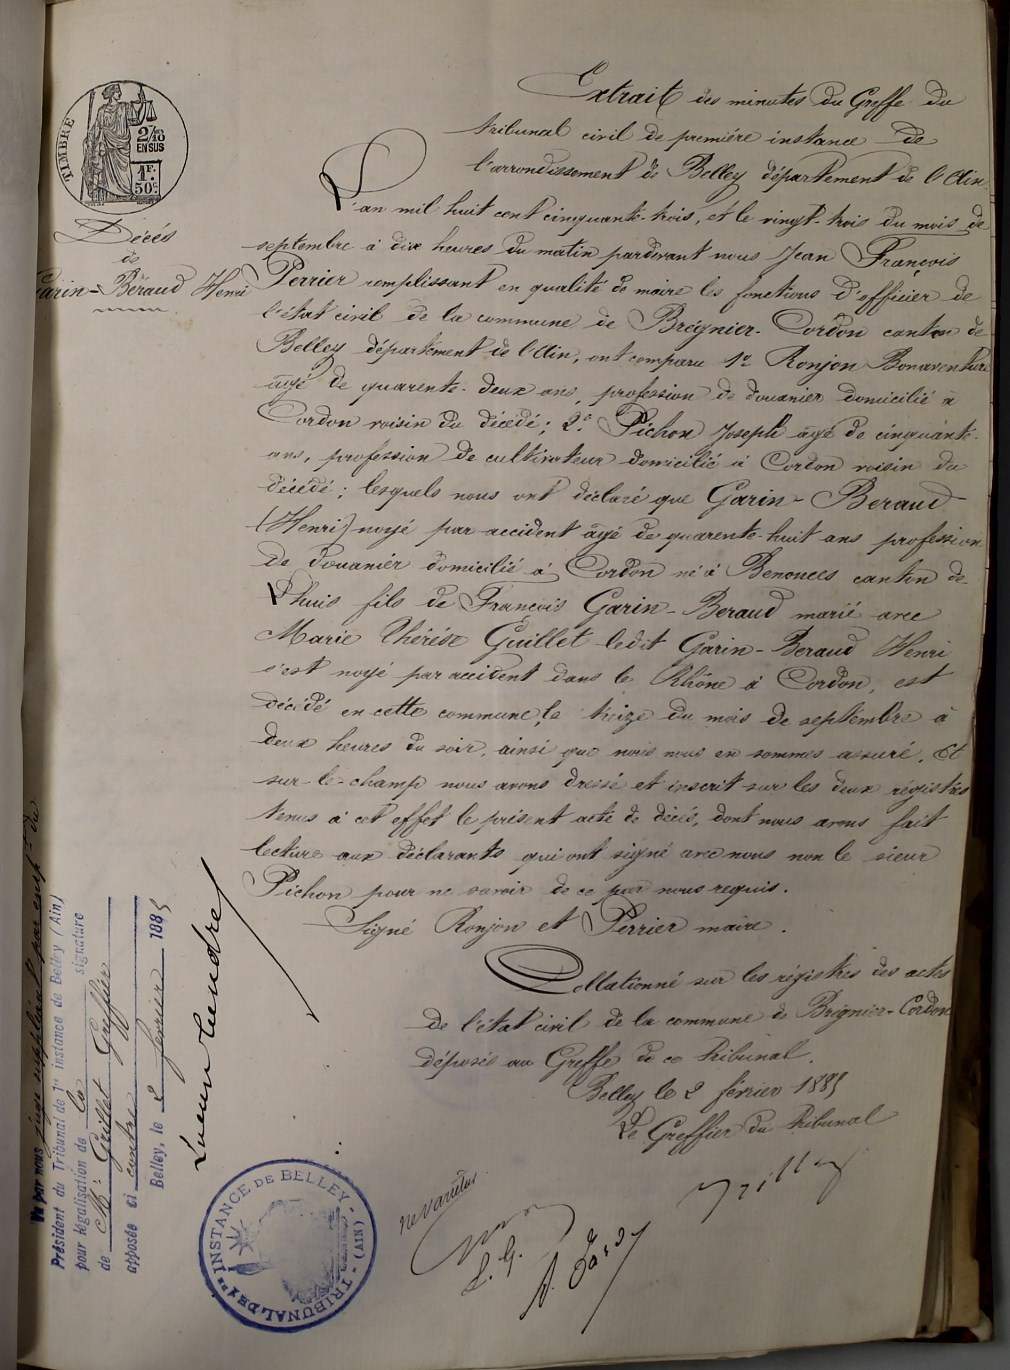 TIMBRE
2/10
EN SUS
1F.
50c.
Décès
de
Garin-Béraud Henri
Extrait des minutes du Greffe du
tribunal civil de première instance de
l'arrondissement de Belley département de l'Ain
L'an mil huit cent cinquante-trois, et le vingt-trois du mois de
septembre à dix heures du matin pardevant nous Jean François
Perrier remplissant en qualité de maire les fonctions d'officier de
l'état civil de la commune de Brégnier-Cordon canton de
Belley département de l'Ain, ont comparu 1º Ronjon Bonaventure
âgé de quarente-deux ans, profession de douanier domicilié à
Cordon voisin du décédé; 2º Pichon Joseph âgé de cinquante-
ans, profession de cultivateur domicilié à Cordon voisin du
décédé; lesquels nous ont déclaré que Garin-Beraud
(Henri) noyé par accident âgé de quarente-huit ans profession
de douanier domicilié à Cordon né à Benonces canton de
Lhuis fils de François Garin-Beraud marié avec
Marie Thérèse Guillet ledit Garin-Beraud Henri
s'est noyé par accident dans le Rhône à Cordon, est
décédé en cette commune le treize du mois de septembre à
deux heures du soir, ainsi que nous nous en sommes assuré. Et
sur-le-champ nous avons dressé et inscrit sur les deux régistres
tenus à cet effet le présent acte de décès, dont nous avons fait
lecture aux déclarants qui ont signé avec nous non le sieur
Pichon pour ne savoir de ce par nous requis.
Signé Ronjon et Perrier maire.
Collationné sur les régistres des actes
de l'état civil de la commune de Brégnier-Cordon
déposés au Greffe de ce Tribunal.
Belley le 2 février 1885
Le Greffier du Tribunal
Vu par nous juge suppléant par empt du
Président du Tribunal de 1re instance de Belley (Ain)
pour légalisation de la signature
de Mr Grillet Greffier
apposée ci contre
Belley, le 2 février 1885
TRIBUNAL DE 1re INSTANCE DE BELLEY (AIN)
ne varietur
L. G.